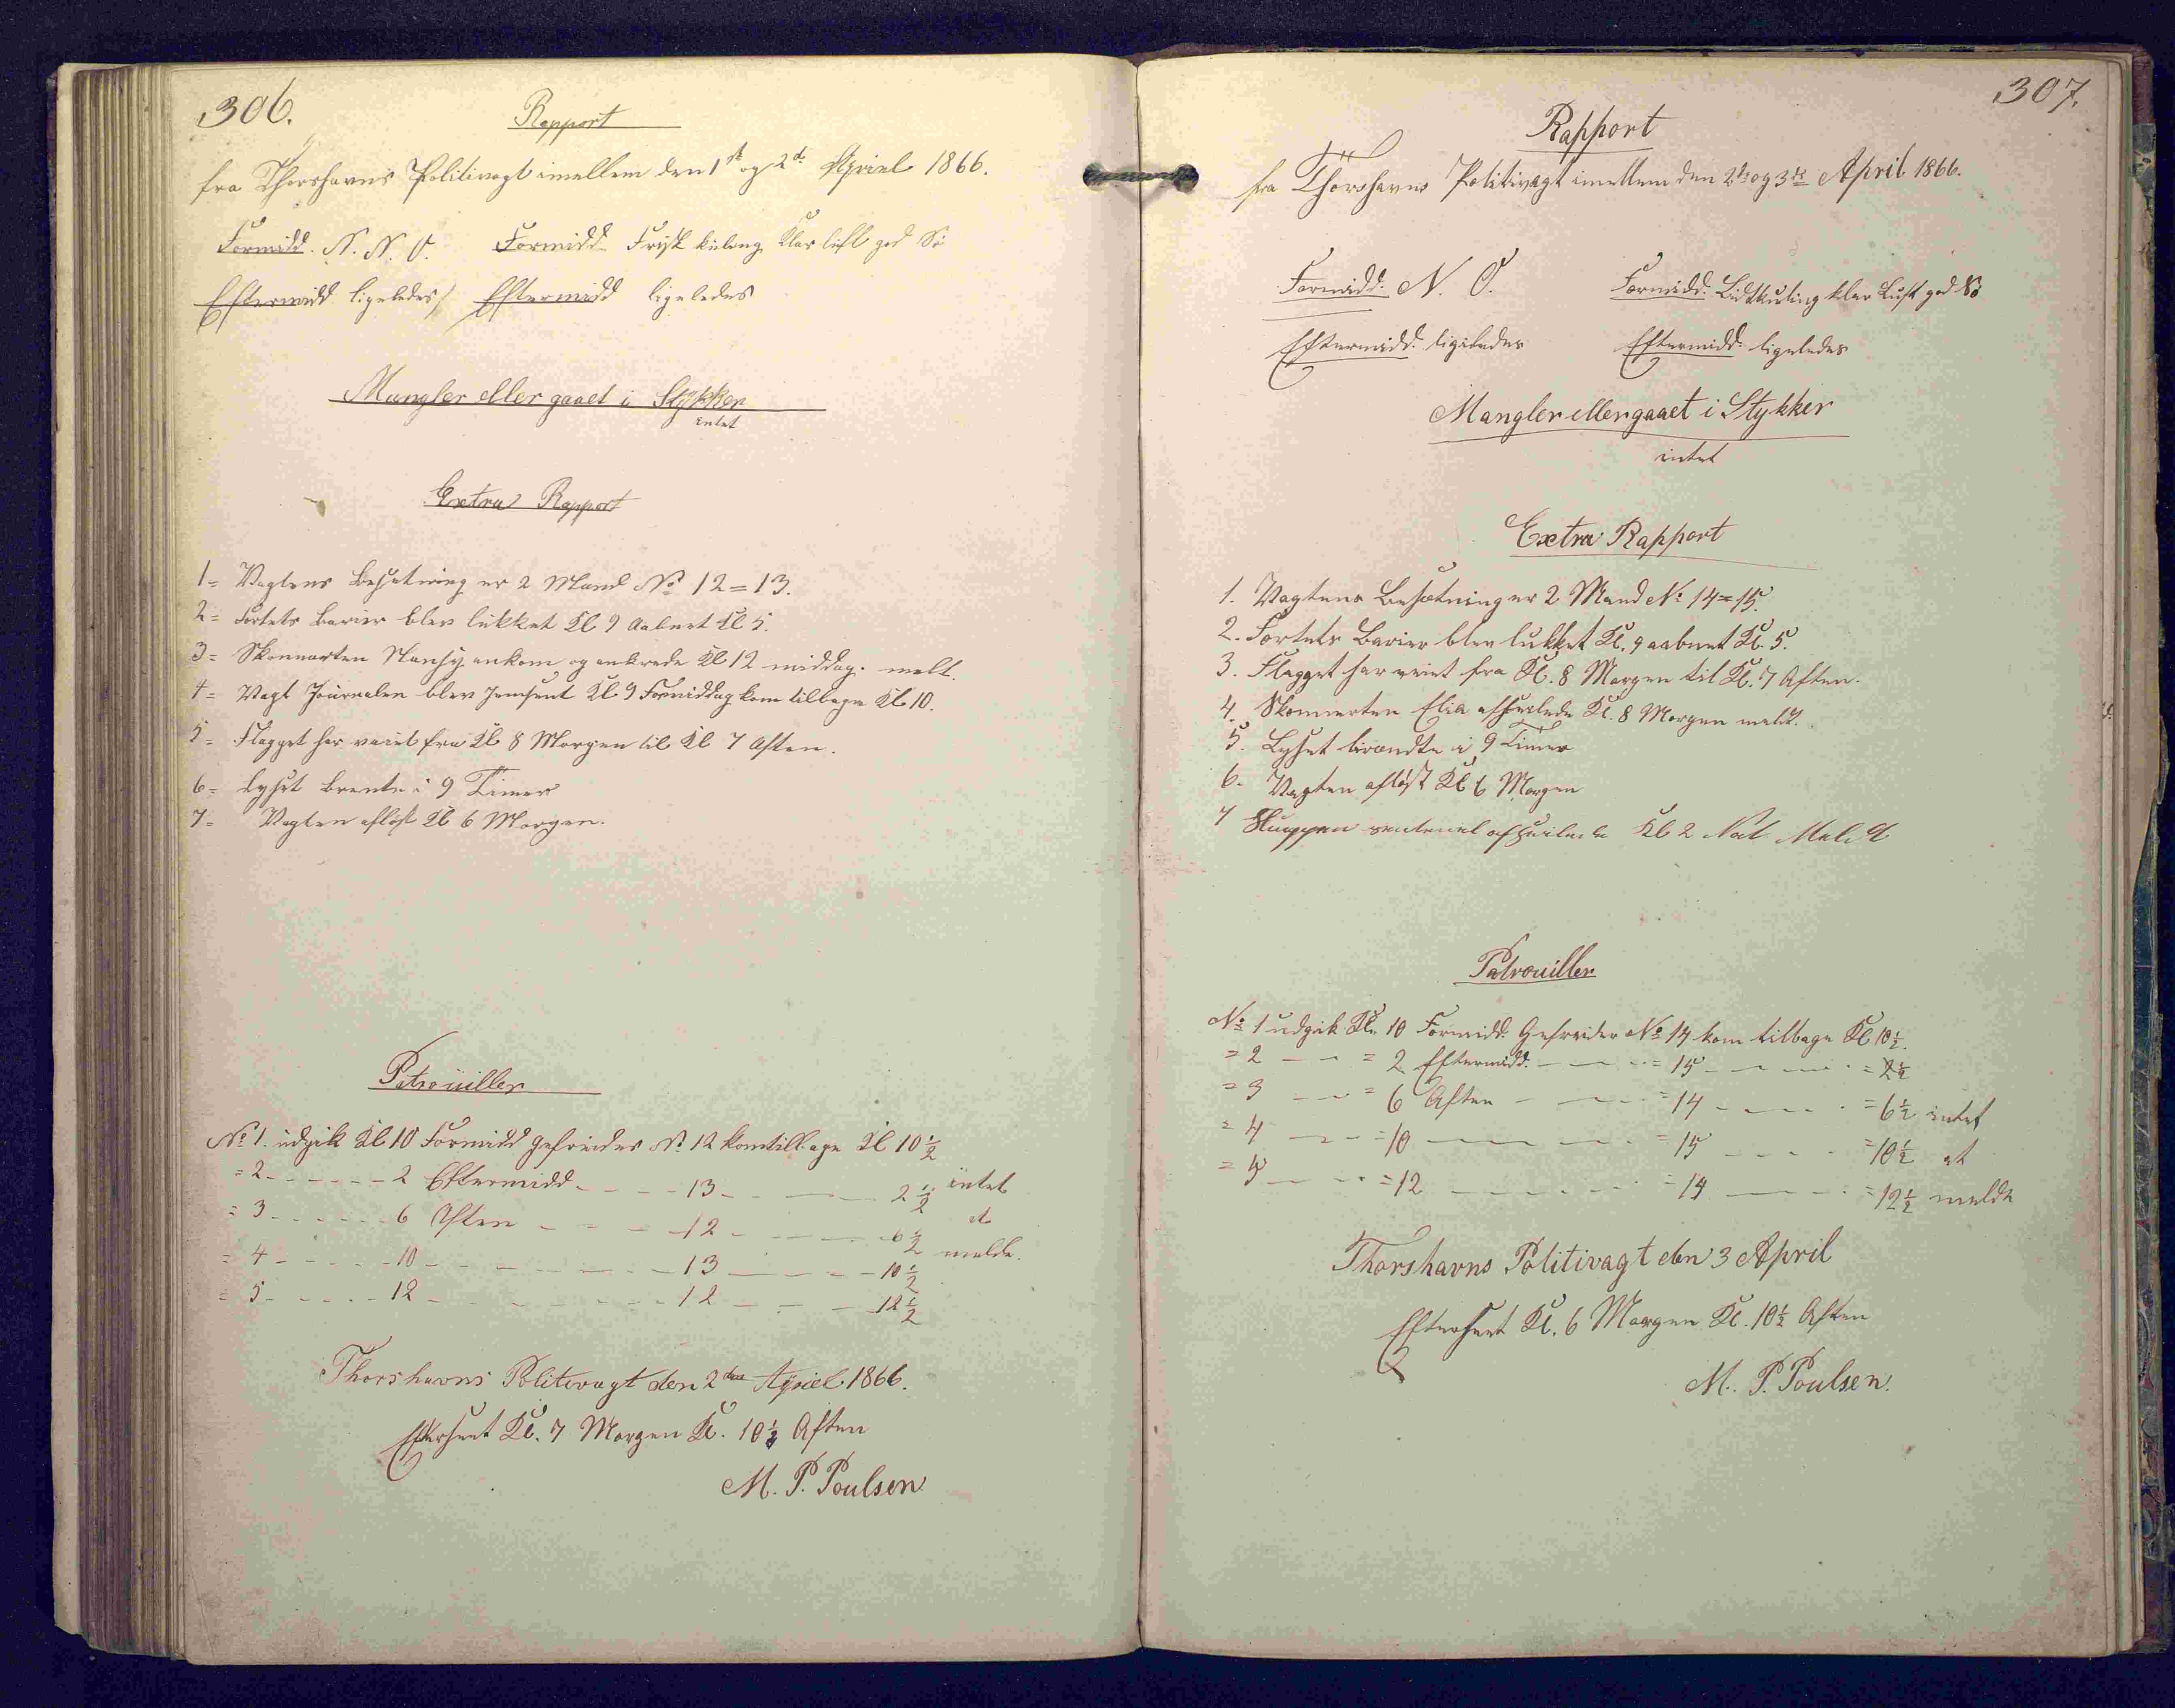 306.
Rapport
fra Thorshavns Politivagt imellem den 1st og 2d April 1866.
Formidd. N. N. O. Formidd Frisk kuling klar luft god Sö
Eftermidd ligeledes Eftermidd ligeledes
Mangler eller gaaet i Stykker
intet
Extra Rapport
1= Vagtens Besætning er 2 Mand No 12=13.
2= Fortets Barier blev lukket Kl 9 Aabnet Kl 5.
3= Skonnarten ankom og ankrede Kl 12 middag. melt.
4= Vagt Journalen blev fremsent Kl 9 Formiddag kom tilbage Kl 10.
5= Flagget har vaiet fra Kl 8 Morgen til Kl 7 Aften.
6= Lyset brente i 9 Timer
7= Vagten afløst Kl 6 Morgen.
Patrouiller
No 1. udgik Kl 10 Formidd Gefreider No 12 kom tilbage Kl 10 1/2
= 2 - - - - - - 2 Eftermidd - - - - 13 - - - - 2 1/2 intet
= 3 - - - - - - 6 Aften - - - - 12 - - - - 6 1/2 at
= 4 - - - - - 10 - - - - - - 13 - - - - 10 1/2 melde.
= 5 - - - - - 12 - - - - - - 12 - - - - 12 1/2
Thorshavns Politivagt den 2den April 1866.
Efterseet Kl. 7 Morgen Kl. 10 1/2 Aften
M. P. Poulsen.
307.
Rapport
fra Thorshavns Politivagt imellem den 2de og 3de April 1866.
Formidd. N. O. Formidd. Lidt kuling klar Luft god Sö
Eftermidd. ligeledes Eftermidd. ligeledes
Mangler eller gaaet i Stykker
intet
Extra Rapport
1. Vagtens Besætning er 2 Mand No 14=15.
2. Fortets Barier blev lukket Kl. 9 aabnet Kl. 5.
3. Flagget har vaiet fra Kl. 8 Morgen til Kl. 7 Aften.
4. Skonnerten Elia afseilede Kl. 8 Morgen meldt.
5. Lyset brændte i 9 Timer
6. Vagten afløst Kl 6 Morgen
7 Sluppen sentenel afseilede Kl 2 Nat Meldt
Patrouiller
No 1 udgik Kl. 10 Formidd. Gefreider No 14 kom tilbage Kl 10 1/2.
= 2 - - = 2 Eftermidd. - - - = 15 - - - - = 2 1/2
= 3 - - = 6 Aften - - - = 14 - - - - = 6 1/2 intet
= 4 - - = 10 - - - - = 15 - - - - = 10 1/2 at
= 5 - - = 12 - - - - = 14 - - - - = 12 1/2 melde
Thorshavns Politivagt den 3 April
Efterseet Kl. 6 Morgen Kl. 10 1/2 Aften
M. P. Poulsen.